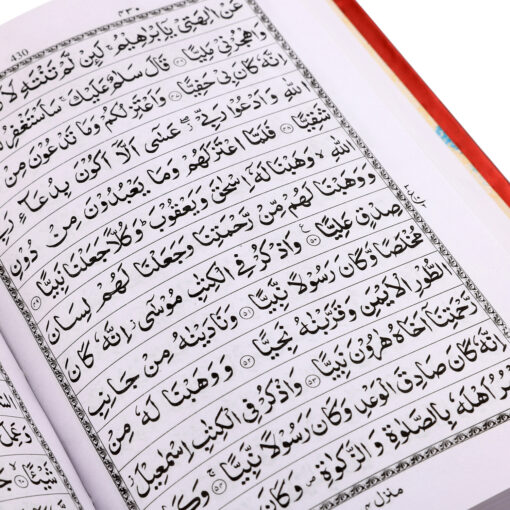 430
عَنْ اٰلِهَتِیْ یٰۤاِبْرٰهِیْمُ ۚ لَىِٕنْ لَّمْ تَنْتَهِ
وَاهْجُرْنِیْ مَلِیًّا ۴۶ قَالَ سَلٰمٌ عَلَیْكَ ۚ سَاَسْتَغْفِرُ
اِنَّهٗ كَانَ بِیْ حَفِیًّا ۴۷ وَاَعْتَزِلُكُمْ وَمَا تَدْعُوْنَ مِنْ
اللّٰهِ وَاَدْعُوْا رَبِّیْ ۖ عَسٰۤی اَلَّاۤ اَكُوْنَ بِدُعَآءِ
شَقِیًّا ۴۸ فَلَمَّا اعْتَزَلَهُمْ وَمَا یَعْبُدُوْنَ مِنْ دُوْنِ
اللّٰهِ ۙ وَهَبْنَا لَهٗۤ اِسْحٰقَ وَیَعْقُوْبَ ؕ وَكُلًّا جَعَلْنَا نَبِیًّا ۴۹
وَوَهَبْنَا لَهُمْ مِّنْ رَّحْمَتِنَا وَجَعَلْنَا لَهُمْ لِسَانَ
صِدْقٍ عَلِیًّا ۵۰ وَاذْكُرْ فِی الْكِتٰبِ مُوْسٰۤی ؗ اِنَّهٗ كَانَ
مُخْلَصًا وَّكَانَ رَسُوْلًا نَّبِیًّا ۵۱ وَنَادَیْنٰهُ مِنْ جَانِبِ
الطُّوْرِ الْاَیْمَنِ وَقَرَّبْنٰهُ نَجِیًّا ۵۲ وَوَهَبْنَا لَهٗ مِنْ
رَّحْمَتِنَاۤ اَخَاهُ هٰرُوْنَ نَبِیًّا ۵۳ وَاذْكُرْ فِی الْكِتٰبِ اِسْمٰعِیْلَ
اِنَّهٗ كَانَ صَادِقَ الْوَعْدِ وَكَانَ رَسُوْلًا نَّبِیًّا ۵۴
اَهْلَهٗ بِالصَّلٰوةِ وَالزَّكٰوةِ ۪ وَكَانَ
منزل ۴